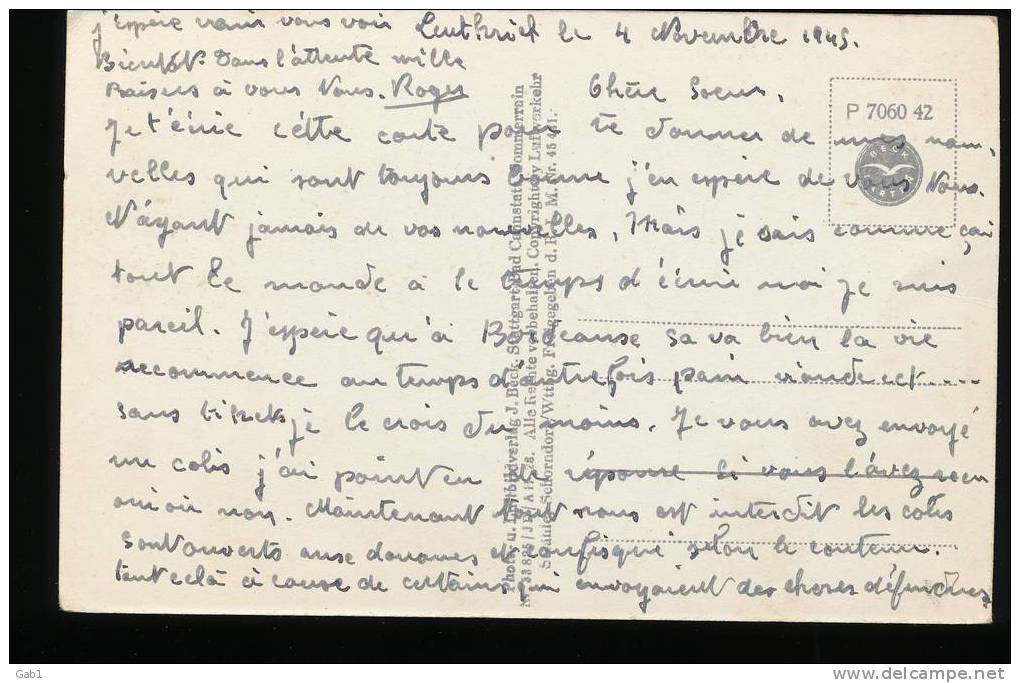 Leutkirch le 4 Novembre 1945.
Chère Soeur,
Je t'écrie cette carte pour te donner de mes nou,
velles qui sont toujours bonne j'en espère de vous Nous.
N'ayant jamais de vos nouvelles, Mais je sais comme ça
tout le monde à le temps d'écrire moi je suis
pareil. J'espère qu'à Bordeause sa va bien la vie
recommence au temps d'autrefois pain viande ect....
sans tikets je le crois du moins. Je vous avez envoyé
un colis j'ai point eu de réponse si vous l'avez recu
oui ou non. Maintenant tout nous est interdit les colis
sont ouverts ause douanes et confisqué selon le contenu.
tout celà à cause de certains qui envoyaient des choses défendues
j'espère vous voir
Bientôt. Dans l'attente mille
Baisers à vous Nous. Roger
P 7060 42
Photo u. Luftbildverlag J. Beck, Stuttgart-Bad Cannstatt, Sommerrain
Alle Rechte vorbehalten. Copyright by Luftverkehr
Strähle, Schorndorf/Wttbg. Freigegeben d. R. L. M. Nr.
Gab1
delcampe.net